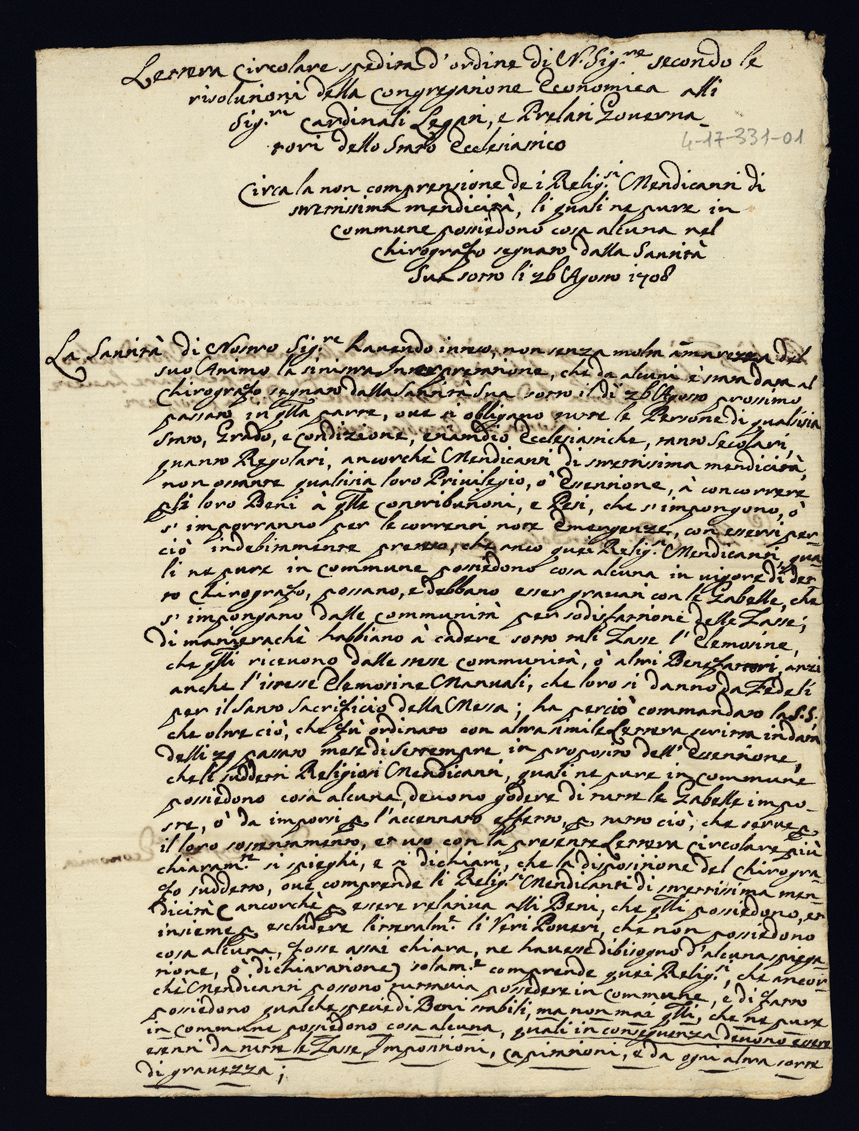 Lettera Circolare spedita d'ordine di N. Sig.re secondo le
risolutioni della Congregatione Economica alli
Sig.ri Cardinali Legati, e Prelati Governa
tori dello Stato Ecclesiastico
4-17-331-01
Circa la non comprensione de i Relig.si Mendicanti di
strettissima mendicità, li quali ne pure in
commune possiedono cosa alcuna nel
Chirografo segnato dalla Santità
Sua sotto li 26 Agosto 1708
La Santità di Nostro Sig.re havendo inteso, non senza molta amarezza del
suo Animo la sinistra Interpretatione, che da alcuni è stata data al
Chirografo segnato dalla Santità Sua sotto il dì 26 Agosto prossimo
passato in qlla parte, ove si obligano tutte le Persone di qualsisia
Stato, Grado, e condizione, etiamdio Ecclesiastiche, tanto Secolari,
quanto Regolari, ancorchè Mendicanti di strettissima mendicità,
non ostante qualsisia loro Privilegio, ò Esentione, à concorrere
p li loro Beni à qlle contributioni, e Pesi, che s'impongono, ò
s'imporranno per le correnti note Emergenze, con essersi per-
ciò indebitamente preteso, che anco quei Relig.si Mendicanti, qua-
li ne pure in commune possiedono cosa alcuna in vigore di det-
to Chirografo, possano, e debbano esser gravati con le Gabelle, che
s'impongano dalle communità per sodisfattione delle Tasse;
Di manierachè habbiano à cadere sotto tali Tasse l'Elemosine,
che qlli ricevono dalle stesse communità, ò altri Benefattori, anzi
anche l'istesse Elemosine Manuali, che loro si danno da Fedeli
per il Santo Sacrificio della Messa; ha perciò commandato la S.S.
che oltre ciò, che fù ordinato con altra simile Lettera scritta in data
delli 29 passato mese di Settempre in proposito dell'Esentione,
che li sudetti Religiosi Mendicanti, quali ne pure in commune
possiedono cosa alcuna, devono godere di tutte le Gabelle impo-
ste, ò da imporsi p l'accennato effetto, p tutto ciò, che serve p
il loro sostentamento, et uso con la presente Lettera Circolare più
chiaram.te si spieghi, e si dichiari, che la disposizione del Chirogra-
fo sudetto, ove comprende li Relig.si Mendicanti di strettissima men-
dicità (ancorchè p essere relativa alli Beni, che qlli possiedono, et
insieme p escludere litteralm.te li Veri Poveri, che non possiedono
cosa alcuna, fosse assai chiara, ne havesse dibisogno d'alcuna spiega-
tione, ò dichiaratione) solam.te comprende quei Relig.si, che ancor-
chè Mendicanti possono tuttavia possedere in commune, e di fatto
possiedono qualche specie di Beni stabili, ma non mai qlli, che ne pure
in commune possiedono cosa alcuna, quali in conseguenza devono essere
esenti da tutte le Tasse Impositioni, capitationi, e da ogni altra sorte
di gravezza;